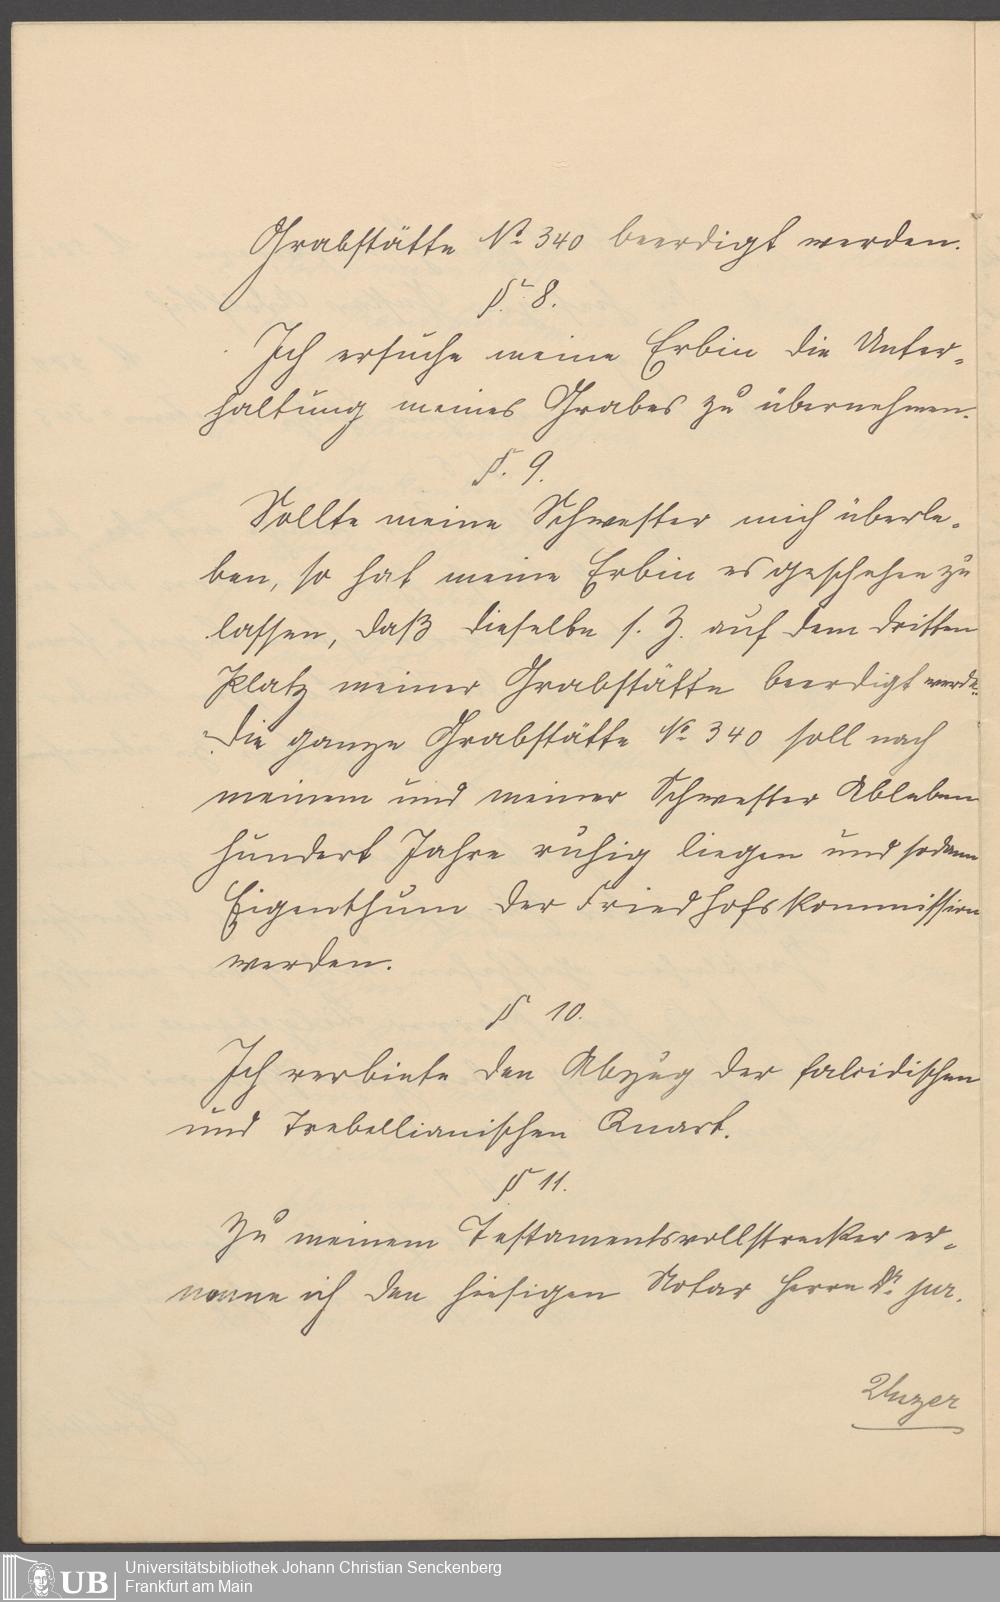 Grabstätte No 340 beerdigt werden.
§. 8.
Ich ersuche meine Erbin die Unter-
haltung meines Grabes zu übernehmen.
§. 9.
Sollte meine Schwester mich überle-
ben, so hat meine Erbin es geschehen zu
lassen, daß dieselbe s. Z. auf dem dritten
Platz meiner Grabstätte beerdigt werde.
Die ganze Grabstätte No 340 soll nach
meinem und meiner Schwester Ableben
hundert Jahre ruhig liegen und sodann
Eigenthum der Friedhofskommission
werden.
§ 10.
Ich verbiete den Abzug der falcidischen
und Trebellianischen Quart.
§ 11.
Zu meinem Testamentsvollstrecker er-
nenne ich den hiesigen Notar Herrn Dr. jur.
UB
Universitätsbibliothek Johann Christian Senckenberg
Frankfurt am Main